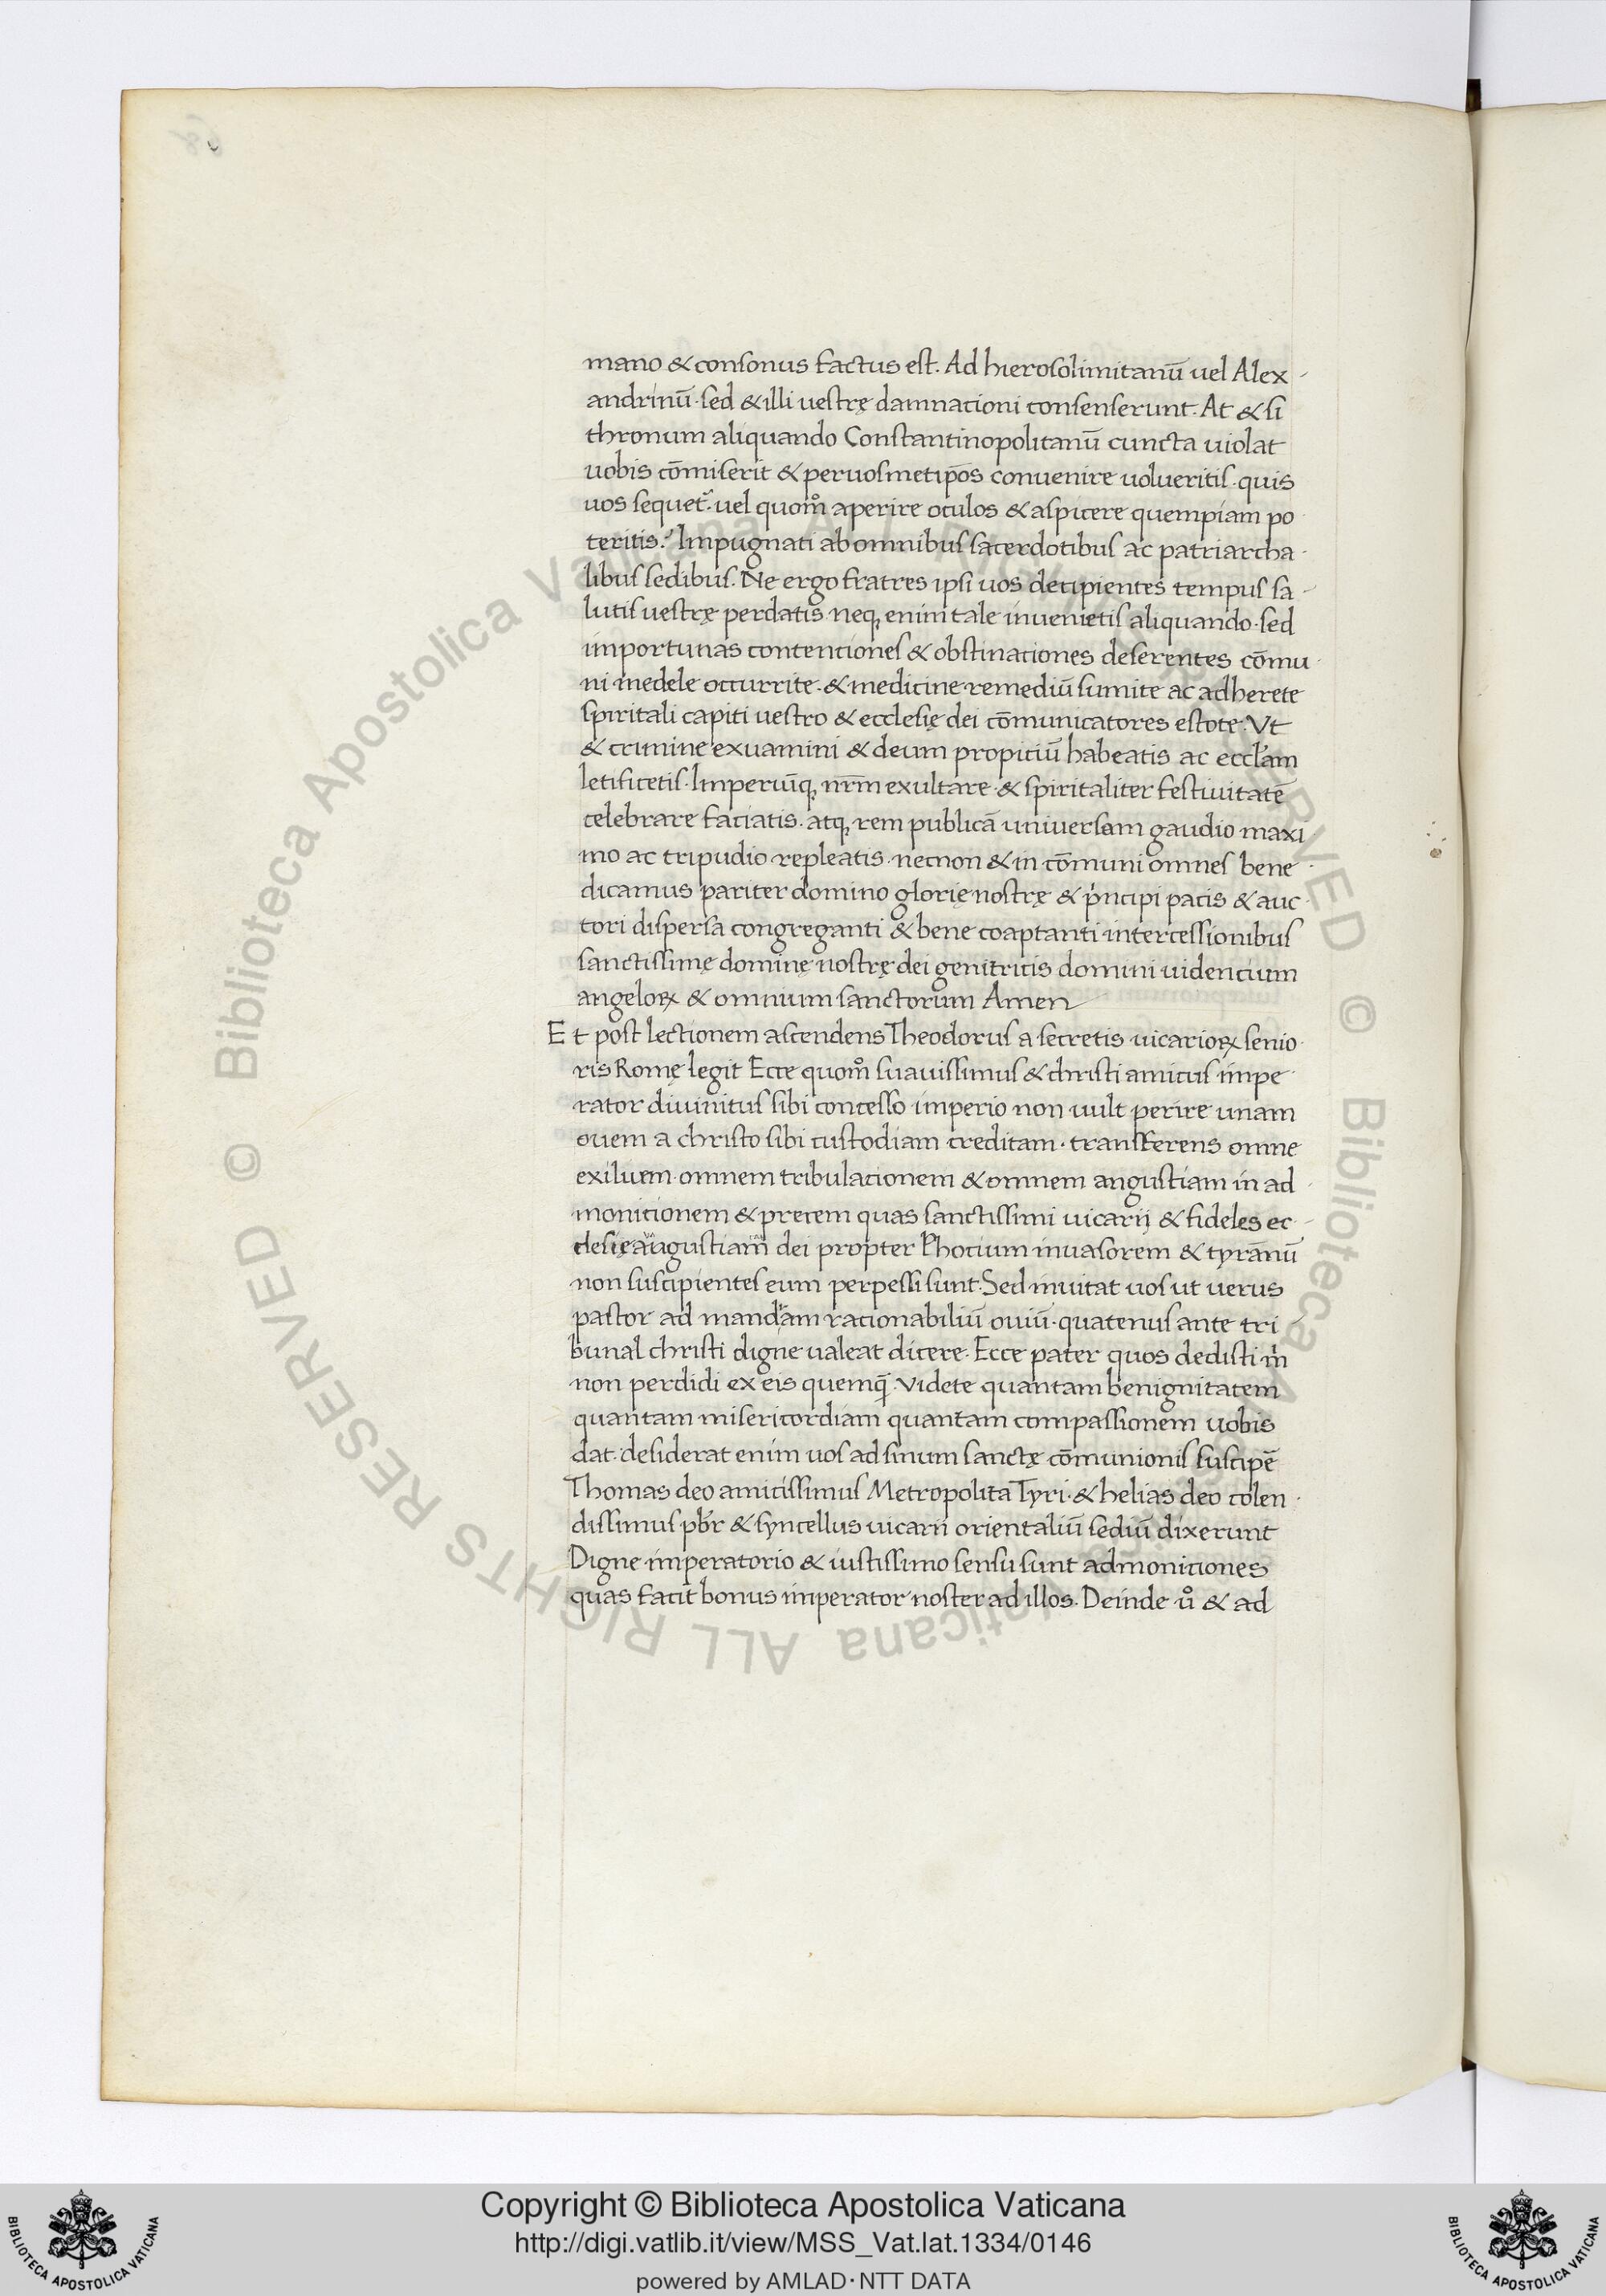 mano & consonus factus est. Ad hierosolimitanū uel Alex-
andrinū. sed & illi uestrę damnacioni consenserunt. At & si
thronum aliquando Constantinopolitanū cuncta uiolat
uobis cōmiserit & per uosmetip̄os conuenire uolueritis. quis
uos sequet᷑. uel quom̊ aperire oculos & aspicere quempiam po
teritis? Impugnati ab omnibus sacerdotibus ac patriarcha-
libus sedibus. Ne ergo fratres ipsi uos decipientes tempus sa-
lutis uestrę perdatis. neq, enim tale inuenietis aliquando. sed
importunas contenciones & obstinaciones deserentes cōmu-
ni medele occurrite. & medicine remediū sumite ac adherete
spiritali capiti uestro & ecclesię dei cōmunicatores estote. Vt
& crimine exuamini & deum propiciū habeatis ac eccl̄am
letificetis. Imperiūq, nr̄m exultare & spiritaliter festiuitatē
celebrare faciatis. atq, rem publicā uniuersam gaudio maxi
mo ac tripudio repleatis. necnon & in cōmuni omnes bene-
dicamus pariter domino glorię nostrę & p'ncipi pacis & auc-
tori dispersa congreganti & bene coaptanti intercessionibus
sanctissimę dominę nostrę dei genitricis domini uidencium
angeloꝝ & omnium sanctorum Amen
Et post lectionem ascendens Theodorus a secretis uicarioꝝ senio-
ris Romę legit Ecce quom̊ suauissimus & christi amicus impe-
rator diuinitus sibi concesso imperio non uult perire unam
ouem a christo sibi custodiam creditam. transferens omne
exilium. omnem tribulacionem & omnem angustiam in ad-
monicionem & precem quas sanctissimi uicarij & fideles ec-
clesię angustiam dei propter Photium inuasorem & tyrānū
non suscipientes eum perpessi sunt. Sed inuitat uos ut uerus
pastor ad mandram racionabiliū ouiū. quatenus ante tri-
bunal christi digne ualeat dicere. Ecce pater quos dedisti m'
non perdidi ex eis quemq̄. Videte quantam benignitatem
quantam misericordiam quantam compassionem uobis
dat. desiderat enim uos ad sinum sanctę cōmunionis suscipē
Thomas deo amicissimus Metropolita Tyri. & helias deo colen-
dissimus pb̄r & syncellus uicarii orientaliū sediū dixerunt
Digne imperatorio & iustissimo sensu sunt admoniciones
quas facit bonus imperator noster ad illos. Deinde ů & ad
© Biblioteca Apostolica Vaticana ALL RIGHTS RESERVED © Biblioteca Apostolica Vaticana ALL RIGHTS RESERVED
BIBLIOTECA APOSTOLICA VATICANA
Copyright © Biblioteca Apostolica Vaticana
http://digi.vatlib.it/view/MSS_Vat.lat.1334/0146
powered by AMLAD·NTT DATA
BIBLIOTECA APOSTOLICA VATICANA